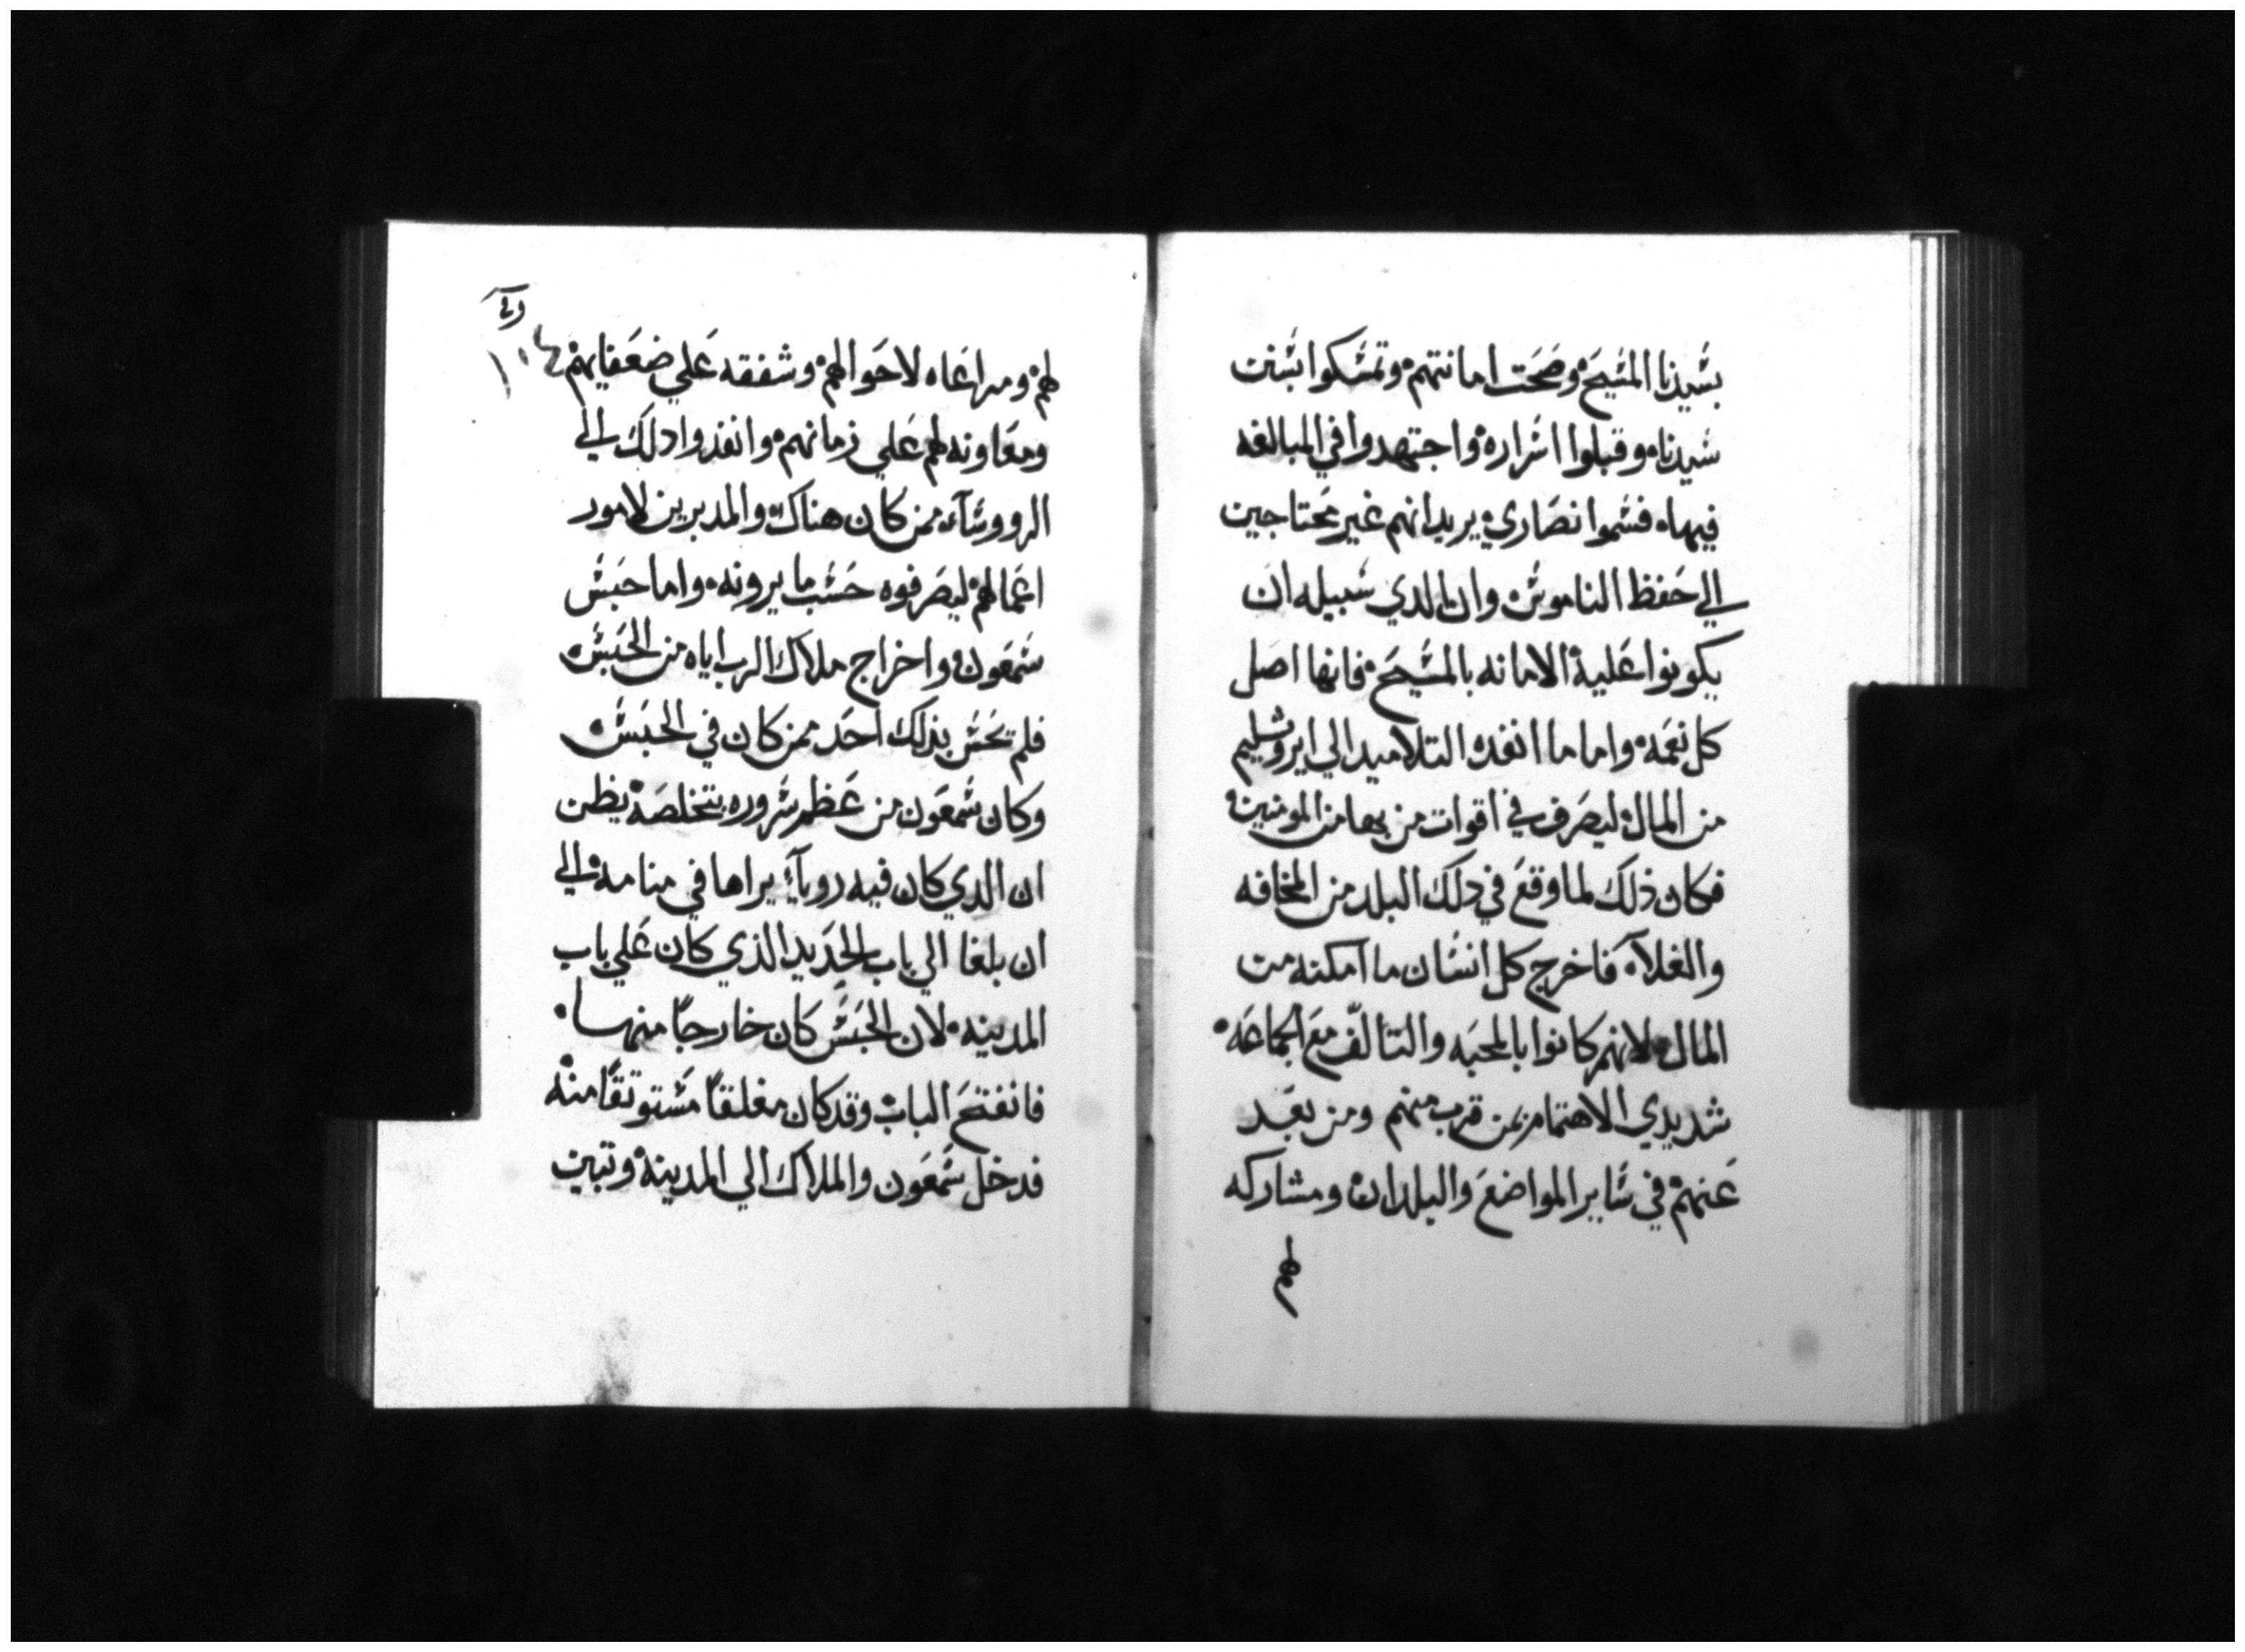 بسيدنا المسيح وصحت امانتهم وتمسكوا بسنت
سيدنا وقبلوا اسراره واجتهدوا في المبالغه
فيها فسموا نصاري يريد انهم غير محتاجين
الي حفظ الناموس وان الدي سبيله ان
يكونوا عليه الامانه بالمسيح فانها اصل
كل نعمه واما ما انفده التلاميد الي ايروشليم
من المال ليصرف في اقوات من بها من المومنين
فكان ذلك لما وقع في دلك البلد من المخافه
والغلآء فاخرج كل انسان ما امكنه من
المال لانهم كانوا بالمحبه والتالّف مع الجماعه
شديدي الاهتمام بمن قرب منهم ومن بعد
عنهم في ساير المواضع والبلدان ومشاركه
لهم
١٠٤
لهم ومراعاه لاحوالهم وشفقه علي ضعفايهم
ومعاونه لهم علي زمانهم وانفذوا دلك الي
الرووسآء ممن كان هناك والمدبرين لامور
اعمالهم ليصرفوه حسب ما يرونه واما حبس
شمعون واخراج ملاك الرب اياه من الحبس
فلم تحس بذلك احد ممن كان في الحبس
وكان شمعون من عظم سروره بتخلصه يظن
ان الدي كان فيه روياء يراها في منامه الي
ان بلغا الي باب الحديد الذي كان علي باب
المدينه لان الحبس كان خارجاً منها
فانفتح الباب وقد كان مغلقاً مستوتقاً منه
فدخل شمعون والملاك الي المدينه وتبين